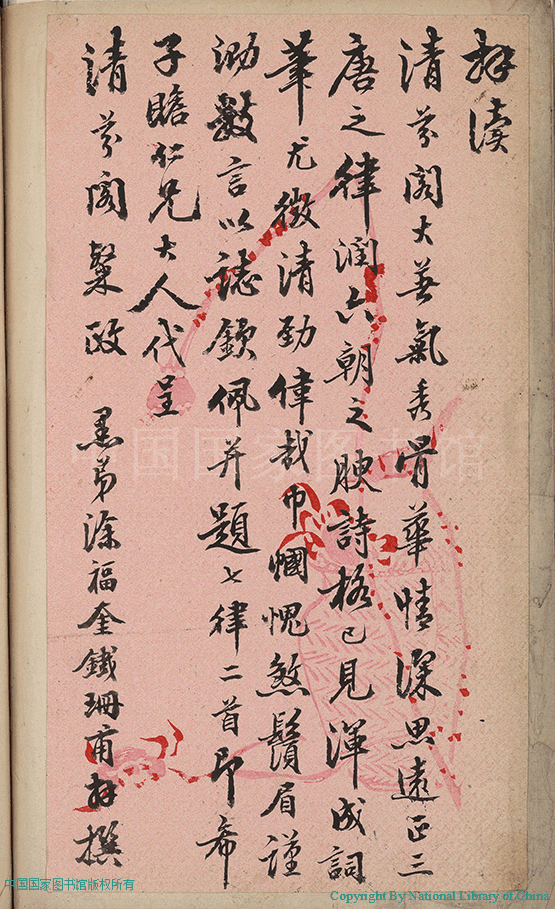 拜讀
清芬閣大著氣秀骨華情深思遠正三
唐之律潤六朝之腴詩格已見渾成詞
筆尤徵清勁偉哉巾幗愧煞鬚眉謹
泐數言以誌欽佩并題七律二首即希
子瞻仁兄大人代呈
清芬閣粲政 愚弟涂福金鐵珊甫拜撰
中国国家图书馆
中国国家图书馆版权所有
Copyright By National Library of China